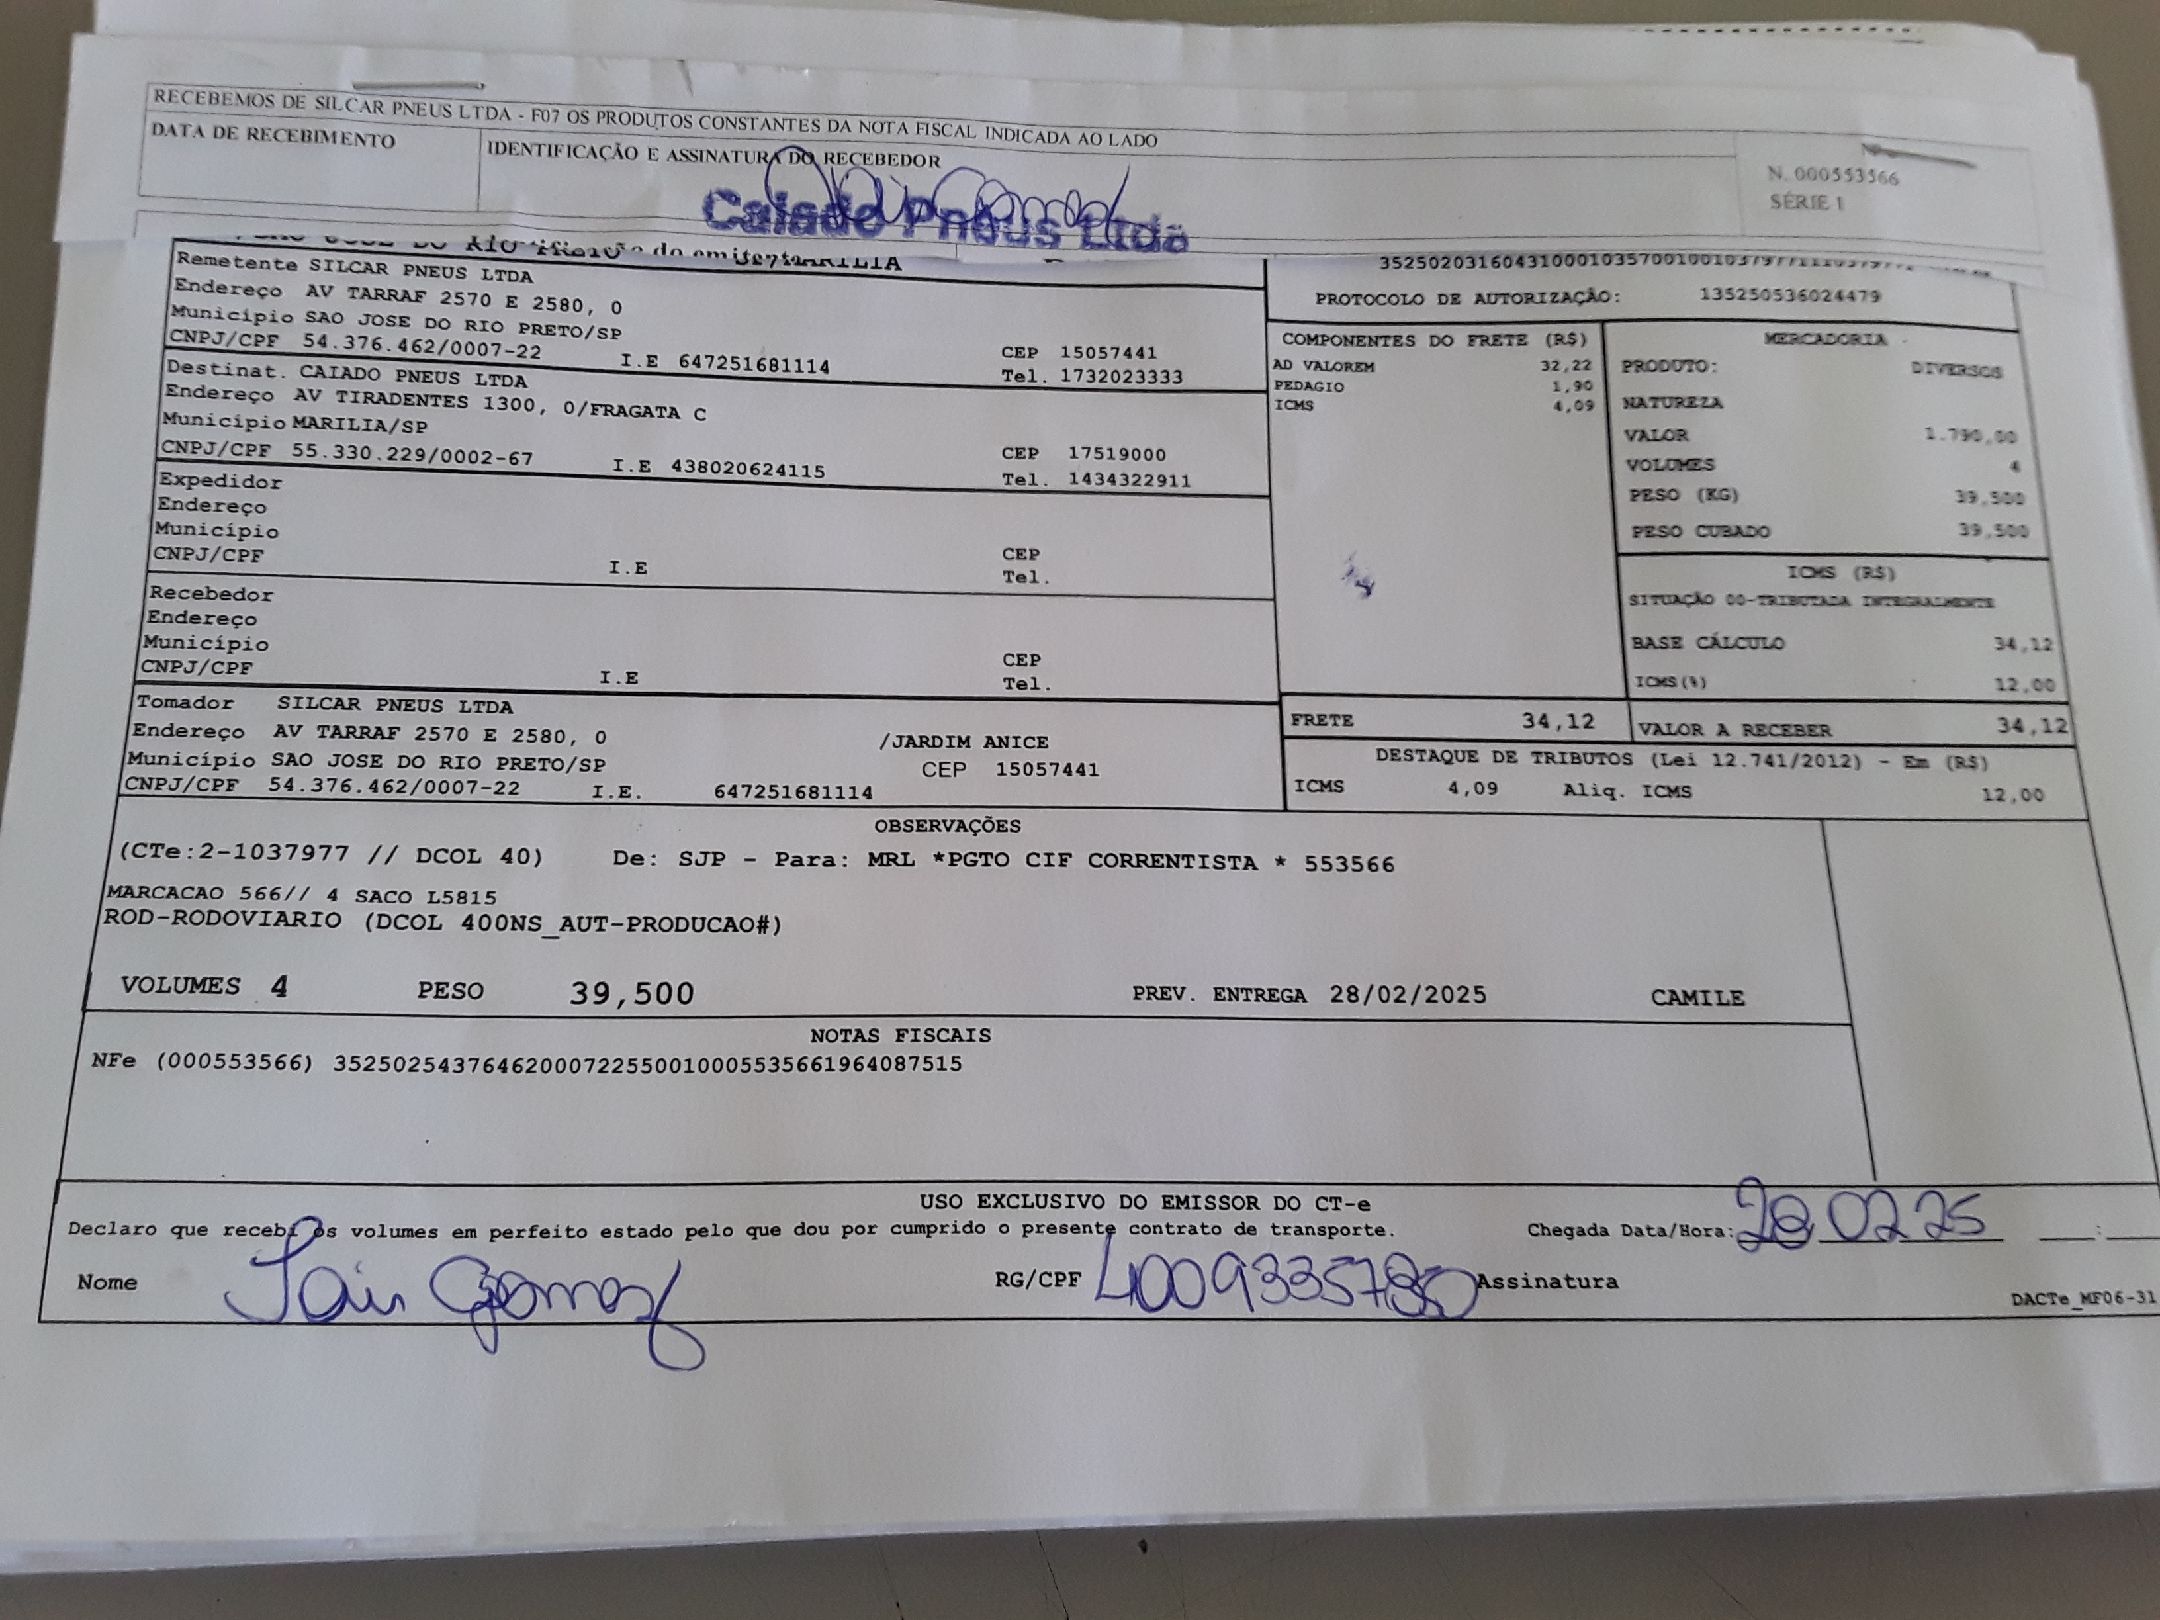 RECEBEMOS DE SILCAR PNEUS LTDA - F07 OS PRODUTOS CONSTANTES DA NOTA FISCAL INDICADA AO LADO
DATA DE RECEBIMENTO
IDENTIFICAÇÃO E ASSINATURA DO RECEBEDOR
N. 000553566
SÉRIE 1
Caiado Pneus Ltda
Remetente SILCAR PNEUS LTDA
Endereço AV TARRAF 2570 E 2580, 0
Município SAO JOSE DO RIO PRETO/SP
CNPJ/CPF 54.376.462/0007-22 I.E 647251681114
CEP 15057441
Tel. 1732023333
Destinat. CAIADO PNEUS LTDA
Endereço AV TIRADENTES 1300, 0/FRAGATA C
Município MARILIA/SP
CNPJ/CPF 55.330.229/0002-67 I.E 438020624115
CEP 17519000
Tel. 1434322911
Expedidor
Endereço
Município
CNPJ/CPF I.E
CEP
Tel.
Recebedor
Endereço
Município
CNPJ/CPF I.E
CEP
Tel.
Tomador SILCAR PNEUS LTDA
Endereço AV TARRAF 2570 E 2580, 0 /JARDIM ANICE
Município SAO JOSE DO RIO PRETO/SP CEP 15057441
CNPJ/CPF 54.376.462/0007-22 I.E. 647251681114
PROTOCOLO DE AUTORIZAÇÃO: 135250536024479
COMPONENTES DO FRETE (R$)
AD VALOREM 32,22
PEDAGIO 1,90
ICMS 4,09
MERCADORIA
PRODUTO: DIVERSOS
NATUREZA
VALOR 1.790,00
VOLUMES 4
PESO (KG) 39,500
PESO CUBADO 39,500
ICMS (R$)
SITUAÇÃO 00-TRIBUTADA INTEGRALMENTE
BASE CÁLCULO 34,12
ICMS(%) 12,00
FRETE 34,12
VALOR A RECEBER 34,12
DESTAQUE DE TRIBUTOS (Lei 12.741/2012) - Em (R$)
ICMS 4,09 Aliq. ICMS 12,00
OBSERVAÇÕES
(CTe:2-1037977 // DCOL 40) De: SJP - Para: MRL *PGTO CIF CORRENTISTA * 553566
MARCACAO 566// 4 SACO L5815
ROD-RODOVIARIO (DCOL 400NS_AUT-PRODUCAO#)
VOLUMES 4 PESO 39,500 PREV. ENTREGA 28/02/2025 CAMILE
NOTAS FISCAIS
NFe (000553566) 35250254376462000722550010005535661964087515
USO EXCLUSIVO DO EMISSOR DO CT-e
Declaro que recebi os volumes em perfeito estado pelo que dou por cumprido o presente contrato de transporte. Chegada Data/Hora: 28 02 25 :
Nome Jair Gomes RG/CPF Assinatura
DACTe_MF06-31